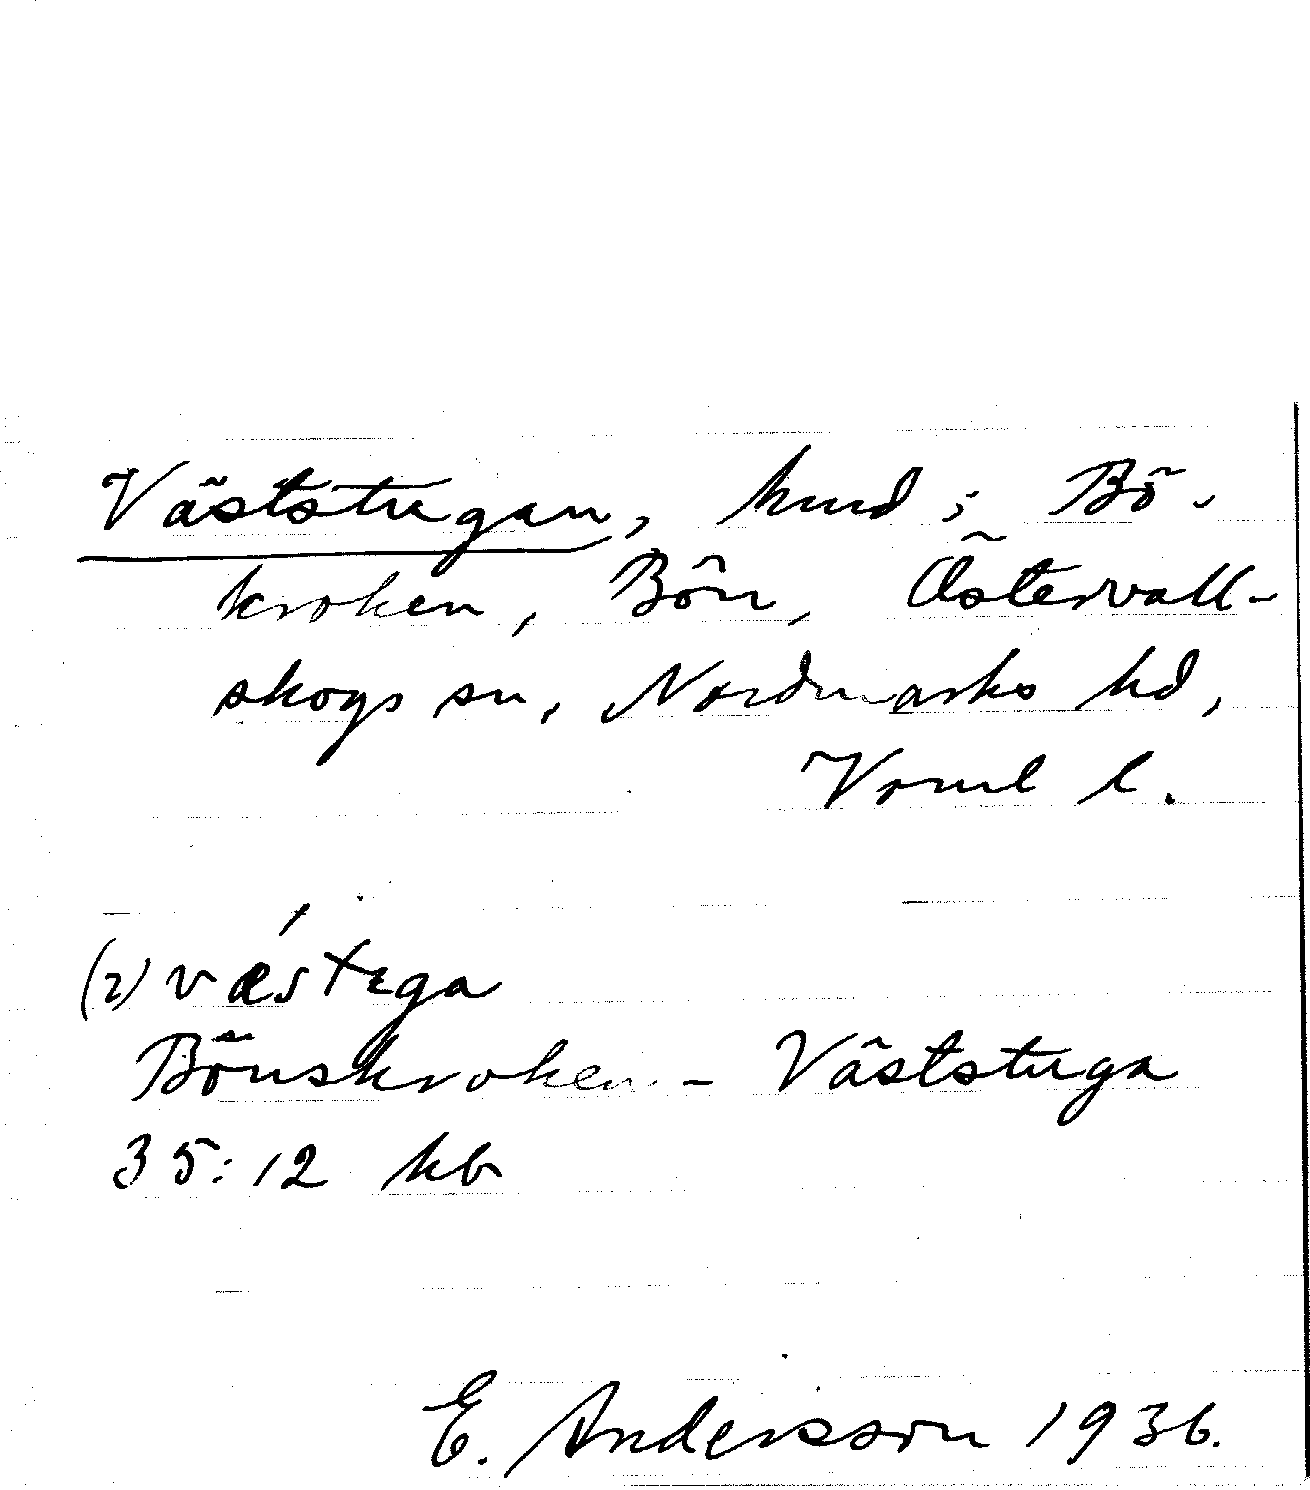 Väststugan, hmd i Bö-
kroken, Bön, Östervall-
skogs sn, Nordmarks hd,
Vrml l.
(2) vǽstuga
Bönskroken - Väststuga
35:12 kb
E. Andersson 1936.